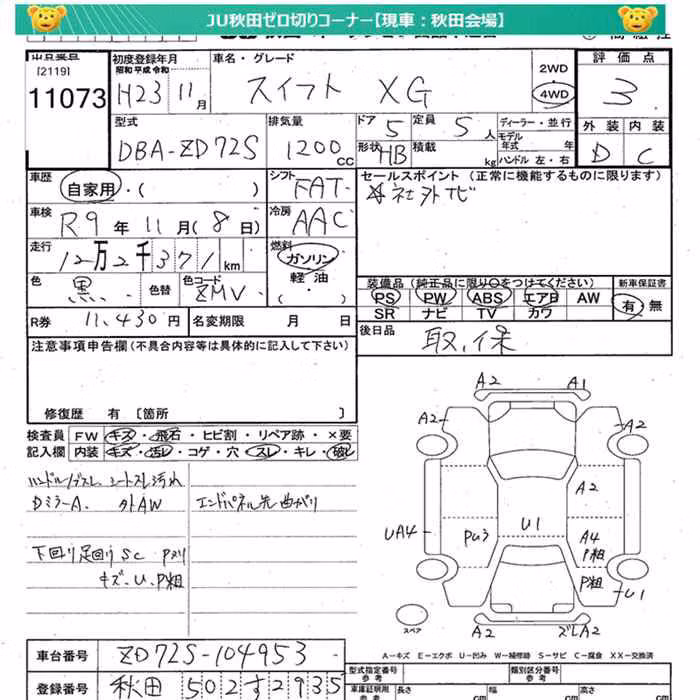 JU秋田ゼロ切りコーナー【現車：秋田会場】
出品番号
[2119]
11073
初度登録年月
昭和 平成 令和
H23 11月
車名・グレード
スイフト XG
2WD
4WD
評価点
3
外装 内装
D C
型式
DBA-ZD72S
排気量
1200cc
ドア 5
形状 HB
定員 5人
積載 kg
ディーラー・並行
モデル年式 年
ハンドル 左・右
車歴
自家用・( )
シフト
FAT
セールスポイント (正常に機能するものに限ります)
社外ナビ
車検
R9年11月(8日)
冷房
AAC
走行
12万2千371km
燃料
ガソリン
軽油
( )
色
黒
色替
色コード
ZMV
装備品 (純正品に限り○をつけてください)
PS PW ABS エアB AW
SR ナビ TV カワ
新車保証書
有 無
R券 11,430円
名変期限 月 日
後日品
取,保
注意事項申告欄(不具合内容等は具体的に記入して下さい)
修復歴 有 [箇所 ]
検査員記入欄
FW キズ・飛石・ヒビ割・リペア跡・×要
内装 キズ・汚レ・コゲ・穴・スレ・キレ・破レ
ハンドルスレ シートスレ汚れ
DミラーA. 外AW
エンドパネル先曲がり
下回り足回りSC Pヌリ
キズ.U.P粗
A2 A1
A2 A2
A2
UA4 PU3 U1 A4
P粗
P粗
U1
A2 ズレA2
スペア
A－キズ E－エクボ U－凹み W－補修跡 S－サビ C－腐食 XX－交換済
車台番号 ZD72S-104953
登録番号 秋田502す2935
型式指定番号
参考
類別区分番号
参考
車庫証明用
参考
長さ cm
幅 cm
高さ cm